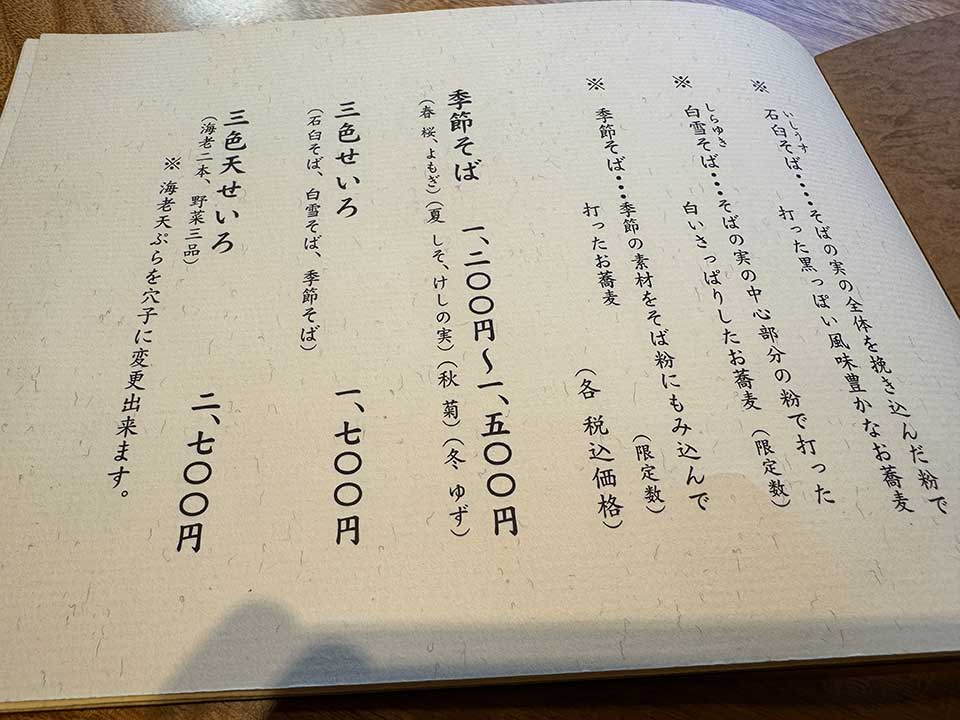 ※ 石臼そば・・・・そばの実の全体を挽き込んだ粉で
いしうす
打った黒っぽい風味豊かなお蕎麦
(限定数)
※ 白雪そば・・・そばの実の中心部分の粉で打った
しらゆき
白いさっぱりしたお蕎麦
(限定数)
※ 季節そば・・・季節の素材をそば粉にもみ込んで
打ったお蕎麦
(各 税込価格)
季節そば 一、二〇〇円～一、五〇〇円
(春 桜、よもぎ)(夏 しそ、けしの実)(秋 菊)(冬 ゆず)
三色せいろ 一、七〇〇円
(石臼そば、白雪そば、季節そば)
三色天せいろ 二、七〇〇円
(海老二本、野菜三品)
※ 海老天ぷらを穴子に変更出来ます。